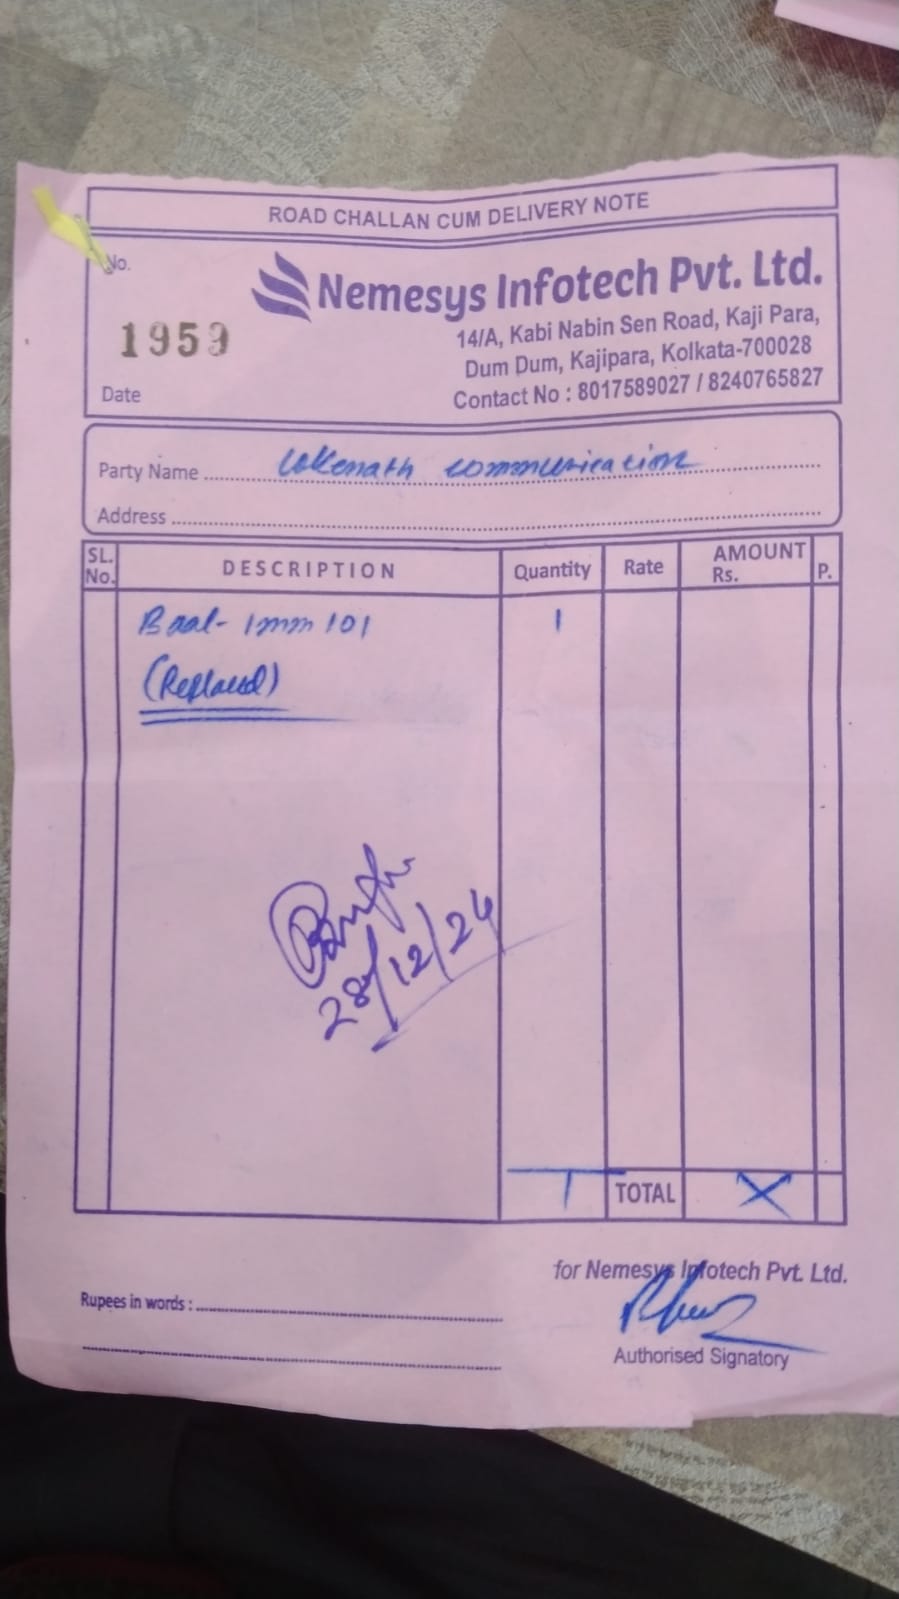 ROAD CHALLAN CUM DELIVERY NOTE
No.
Nemesys Infotech Pvt. Ltd.
1959
14/A, Kabi Nabin Sen Road, Kaji Para,
Dum Dum, Kajipara, Kolkata-700028
Date
Contact No : 8017589027 / 8240765827
Party Name Lokenath communication
Address
SL. No. DESCRIPTION Quantity Rate AMOUNT Rs. P.
1mm 101 1
(Replaced)
28/12/24
1 TOTAL X
for Nemesys Infotech Pvt. Ltd.
Rupees in words :
Authorised Signatory